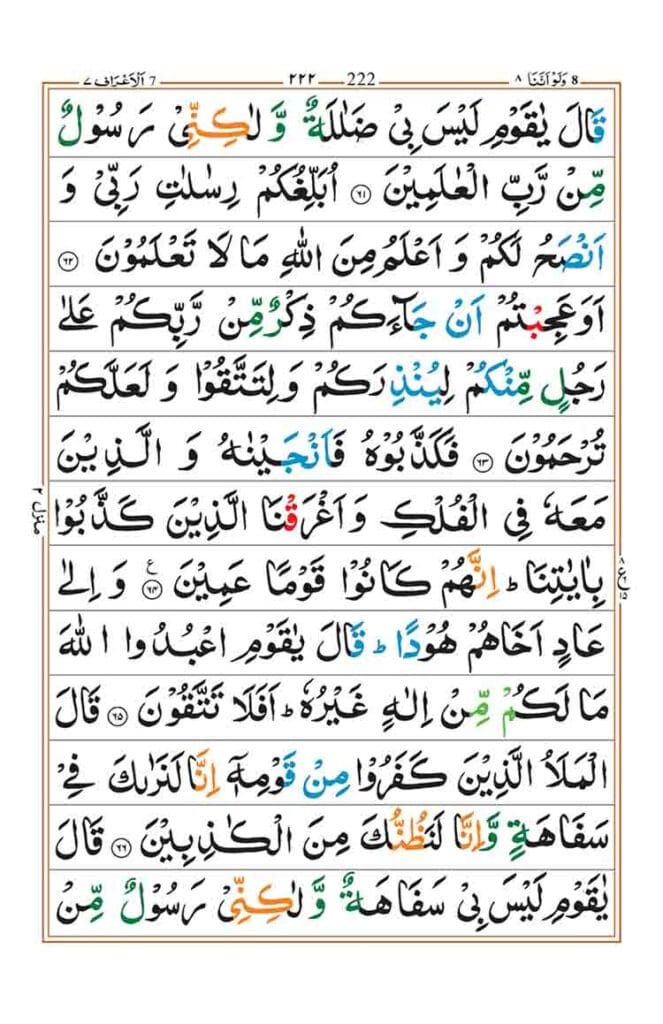 7 اَلْاَعْرَاف ٧ ٢٢٢ 222 8 وَلَوْ اَنَّنَا ٨
قَالَ يٰقَوْمِ لَيْسَ بِيْ ضَلٰلَةٌ وَّ لٰكِنِّيْ رَسُوْلٌ
مِّنْ رَّبِّ الْعٰلَمِيْنَ ﴿٦١﴾ اُبَلِّغُكُمْ رِسٰلٰتِ رَبِّيْ وَ
اَنْصَحُ لَكُمْ وَ اَعْلَمُ مِنَ اللّٰهِ مَا لَا تَعْلَمُوْنَ ﴿٦٢﴾
اَوَعَجِبْتُمْ اَنْ جَآءَكُمْ ذِكْرٌ مِّنْ رَّبِّكُمْ عَلٰى
رَجُلٍ مِّنْكُمْ لِيُنْذِرَكُمْ وَلِتَتَّقُوْا وَ لَعَلَّكُمْ
تُرْحَمُوْنَ ﴿٦٣﴾ فَكَذَّبُوْهُ فَاَنْجَيْنٰهُ وَ الَّذِيْنَ
مَعَهٗ فِي الْفُلْكِ وَاَغْرَقْنَا الَّذِيْنَ كَذَّبُوْا
بِاٰيٰتِنَا ؕ اِنَّهُمْ كَانُوْا قَوْمًا عَمِيْنَ ﴿٦٤﴾ ع وَ اِلٰى
عَادٍ اَخَاهُمْ هُوْدًا ؕ قَالَ يٰقَوْمِ اعْبُدُوا اللّٰهَ
مَا لَكُمْ مِّنْ اِلٰهٍ غَيْرُهٗ ؕ اَفَلَا تَتَّقُوْنَ ﴿٦٥﴾ قَالَ
الْمَلَاُ الَّذِيْنَ كَفَرُوْا مِنْ قَوْمِهٖۤ اِنَّا لَنَرٰىكَ فِيْ
سَفَاهَةٍ وَّاِنَّا لَنَظُنُّكَ مِنَ الْكٰذِبِيْنَ ﴿٦٦﴾ قَالَ
يٰقَوْمِ لَيْسَ بِيْ سَفَاهَةٌ وَّ لٰكِنِّيْ رَسُوْلٌ مِّنْ
منزل ٢